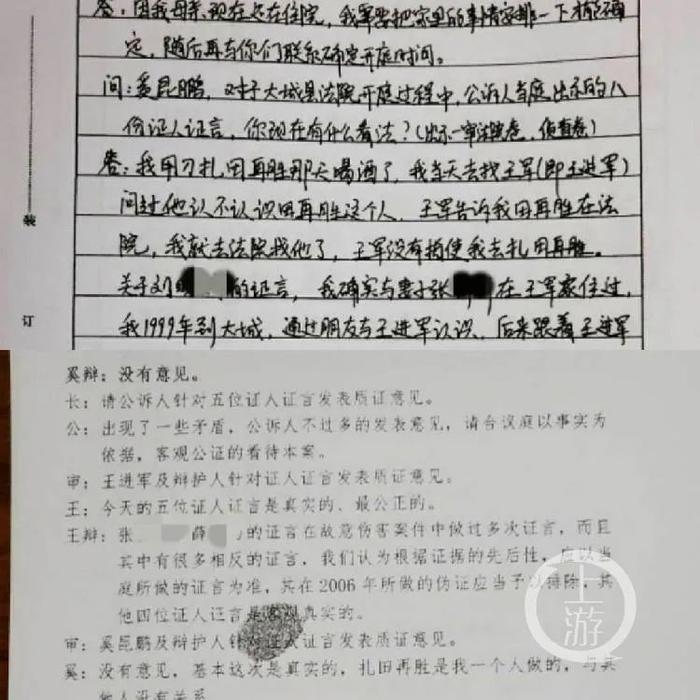 答：因我母亲现在还在住院，我需要把家里的事情安排一下才能确
定，随后再与你们联系确定开庭时间。
问：奚昆鹏，对于大城县法院开庭过程中，公诉人当庭出示的八
份证人证言，你现在有什么看法？（出示一审法院卷，侦查卷）
答：我用刀扎田再胜那天喝酒了，我当天去找王军（即王进军）
问过他认不认识田再胜这个人，王军告诉我田再胜在法
院，我就去法院找他了，王军没有指使我去扎田再胜。
关于刘 的证言，我确实与妻子张 在王军家住过，
我1999年到大城，通过朋友与王进军认识，后来跟着王进军
装
订
奚辩：没有意见。
长：请公诉人针对五位证人证言发表质证意见。
公：出现了一些矛盾，公诉人不过多的发表意见，请合议庭以事实为
依据，客观公证的看待本案。
审：王进军及辩护人针对证人证言发表质证意见。
王：今天的五位证人证言是真实的、最公正的。
王辩：张 薛 的证言在故意伤害案件中做过多次证言，而且
其中有很多相反的证言，我们认为根据证据的先后性，应以当
庭所做的证言为准，其在2006年所做的伪证应当予以排除，其
他四位证人证言是客观真实的。
审：奚昆鹏及辩护人针对证人证言发表质证意见。
奚：没有意见，基本这次是真实的，扎田再胜是我一个人做的，与其
他人没有关系
上游